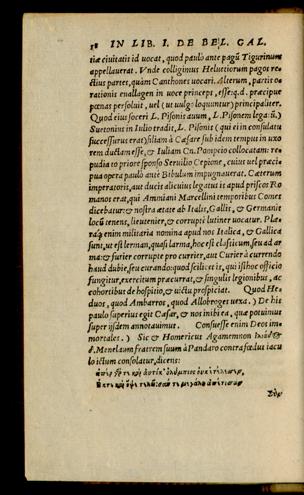 38 IN LIB. I. DE BEL. GAL.
tiæ ciuitatis id uocat, quod paulò ante pagũ Tigurinum
appellauerat. Vnde colligimus Heluetiorum pagos re-
ctius partes, quàm Canthones uocari. Alterum, partis o
rationis enallagen in uoce princeps, esse: q.d. præcipue
pœnas persoluit, uel (ut uulgo loquuntur) principaliter.
Quod eius soceri L. Pisonis auum, L. Pisonem lega.ũ)
Suetonius in Iulio tradit, L. Pisonis (qui ei in consulatu
successurus erat) filiam à Cæsare sub idem tempus in uxo
rem ductam esse, & Iuliam Cn. Pompeio collocatam: re-
pudiato priore sponso Seruilio Cepione, cuius uel præci-
pua opera paulò ante Bibulum impugnauerat. Cæterum
imperatoris, aut ducis alicuius legatus is apud priscos Ro-
manos erat, qui Ammiani Marcellini temporibus Comes
dicebatur: & nostra ætate ab Italis, Gallis, & Germanis
locũ tenens, lieutenier, & corruptè lutiner uocatur. Plæ-
raq; enim militaria nomina apud nos Italica, & Gallica
sunt, ut est lerman, quasi larma, hoc est classicum, seu ad ar
ma: & furier corruptè pro currier, aut Curier à currendo
haud dubiè, seu curando: quod scilicet is, qui isthoc officio
fungitur, exercitum præcurrat, & singulis legionibus, ac
cohortibus de hospitio, & uictu prospiciat. Quod He-
duos, quod Ambarros, quod Allobroges uexa.) De his
paulo superius egit Cæsar, & nos inibi ea, quæ potuimus
super ijsdem annotauimus. Consuesse enim Deos im-
mortales.) Sic & Homericus Agamemnon
Menelaum fratrem suum à Pandaro contra fœdus iacu
lo ictum consolatur, dicens: